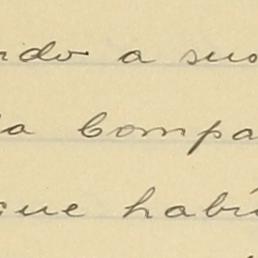 ndo a sus
a compa
que habí